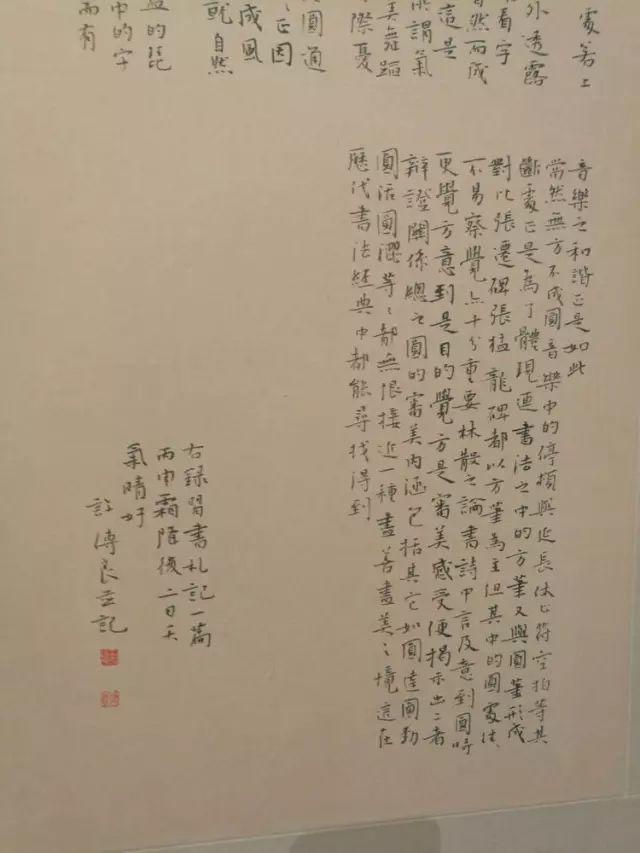 處若
外透露
看字
自然而成
這是
所謂氣
美舞蹈
際憂
圓通
正因
成風
就自然
的琵
中的字
而有
音樂之和諧正是如此
當然無方不成圓音樂中的停頓與延長休止符空拍等其
斷處正是為了體現連書法之中的方筆又與圓筆形成
對比張遷碑張猛龍碑都以方筆為主但其中的圓處往〻
不易察覺亦十分重要林散之論書詩中言及意到圓時
更覺方意到是目的覺方是審美感受便揭示出二者
辯證關係總之圓的審美內涵包括其它如圓達圓勁
圓活圓渾等〻都無限接近一種盡善盡美之境這在
歷代書法經典中都能尋找得到
右錄習書札記一篇
丙申霜降後二日天
氣晴好
許傳良並記